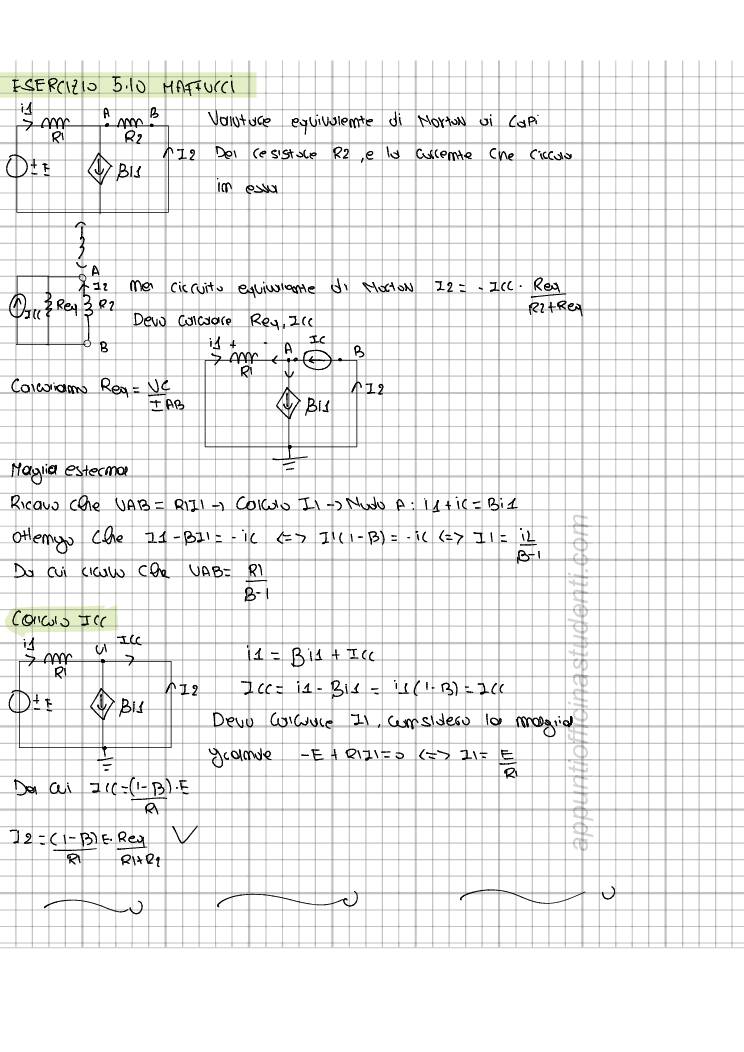 ESERCIZIO 5.10 MATTUCCI
i1 A B
R1 R2
±E Bi1 I2
Valutare equivalente di Norton ai capi
Del resistore R2, e la corrente che circola
in essa
A
I2
Icc Req R2
B
nel circuito equivalente di Norton I2 = - Icc · Req/(R2+Req)
Devo calcolare Req, Icc
i1 + A Ic B
R1
Bi1 I2
Calcoliamo Req = Vc/IAB
Maglia esterna
Ricavo che VAB = R1I1 → Calcolo I1 → Nodo A: i1+ic = Bi1
Ottengo che I1-BI1 = -ic <=> I1(1-B) = -ic <=> I1 = ic/(B-1)
Da cui che VAB = R1/(B-1)
Calcolo Icc
i1 Icc
R1
±E Bi1 I2
i1 = Bi1 + Icc
Icc = i1 - Bi1 = i1(1-B) = Icc
Devo calcolare I1, considero la maglia
grande -E + R1I1 = 0 <=> I1 = E/R1
Da cui Icc = (1-B)·E/R1
I2 = (1-B)E/R1 · Req/(R1+R2)
appuntiofficinastudenti.com